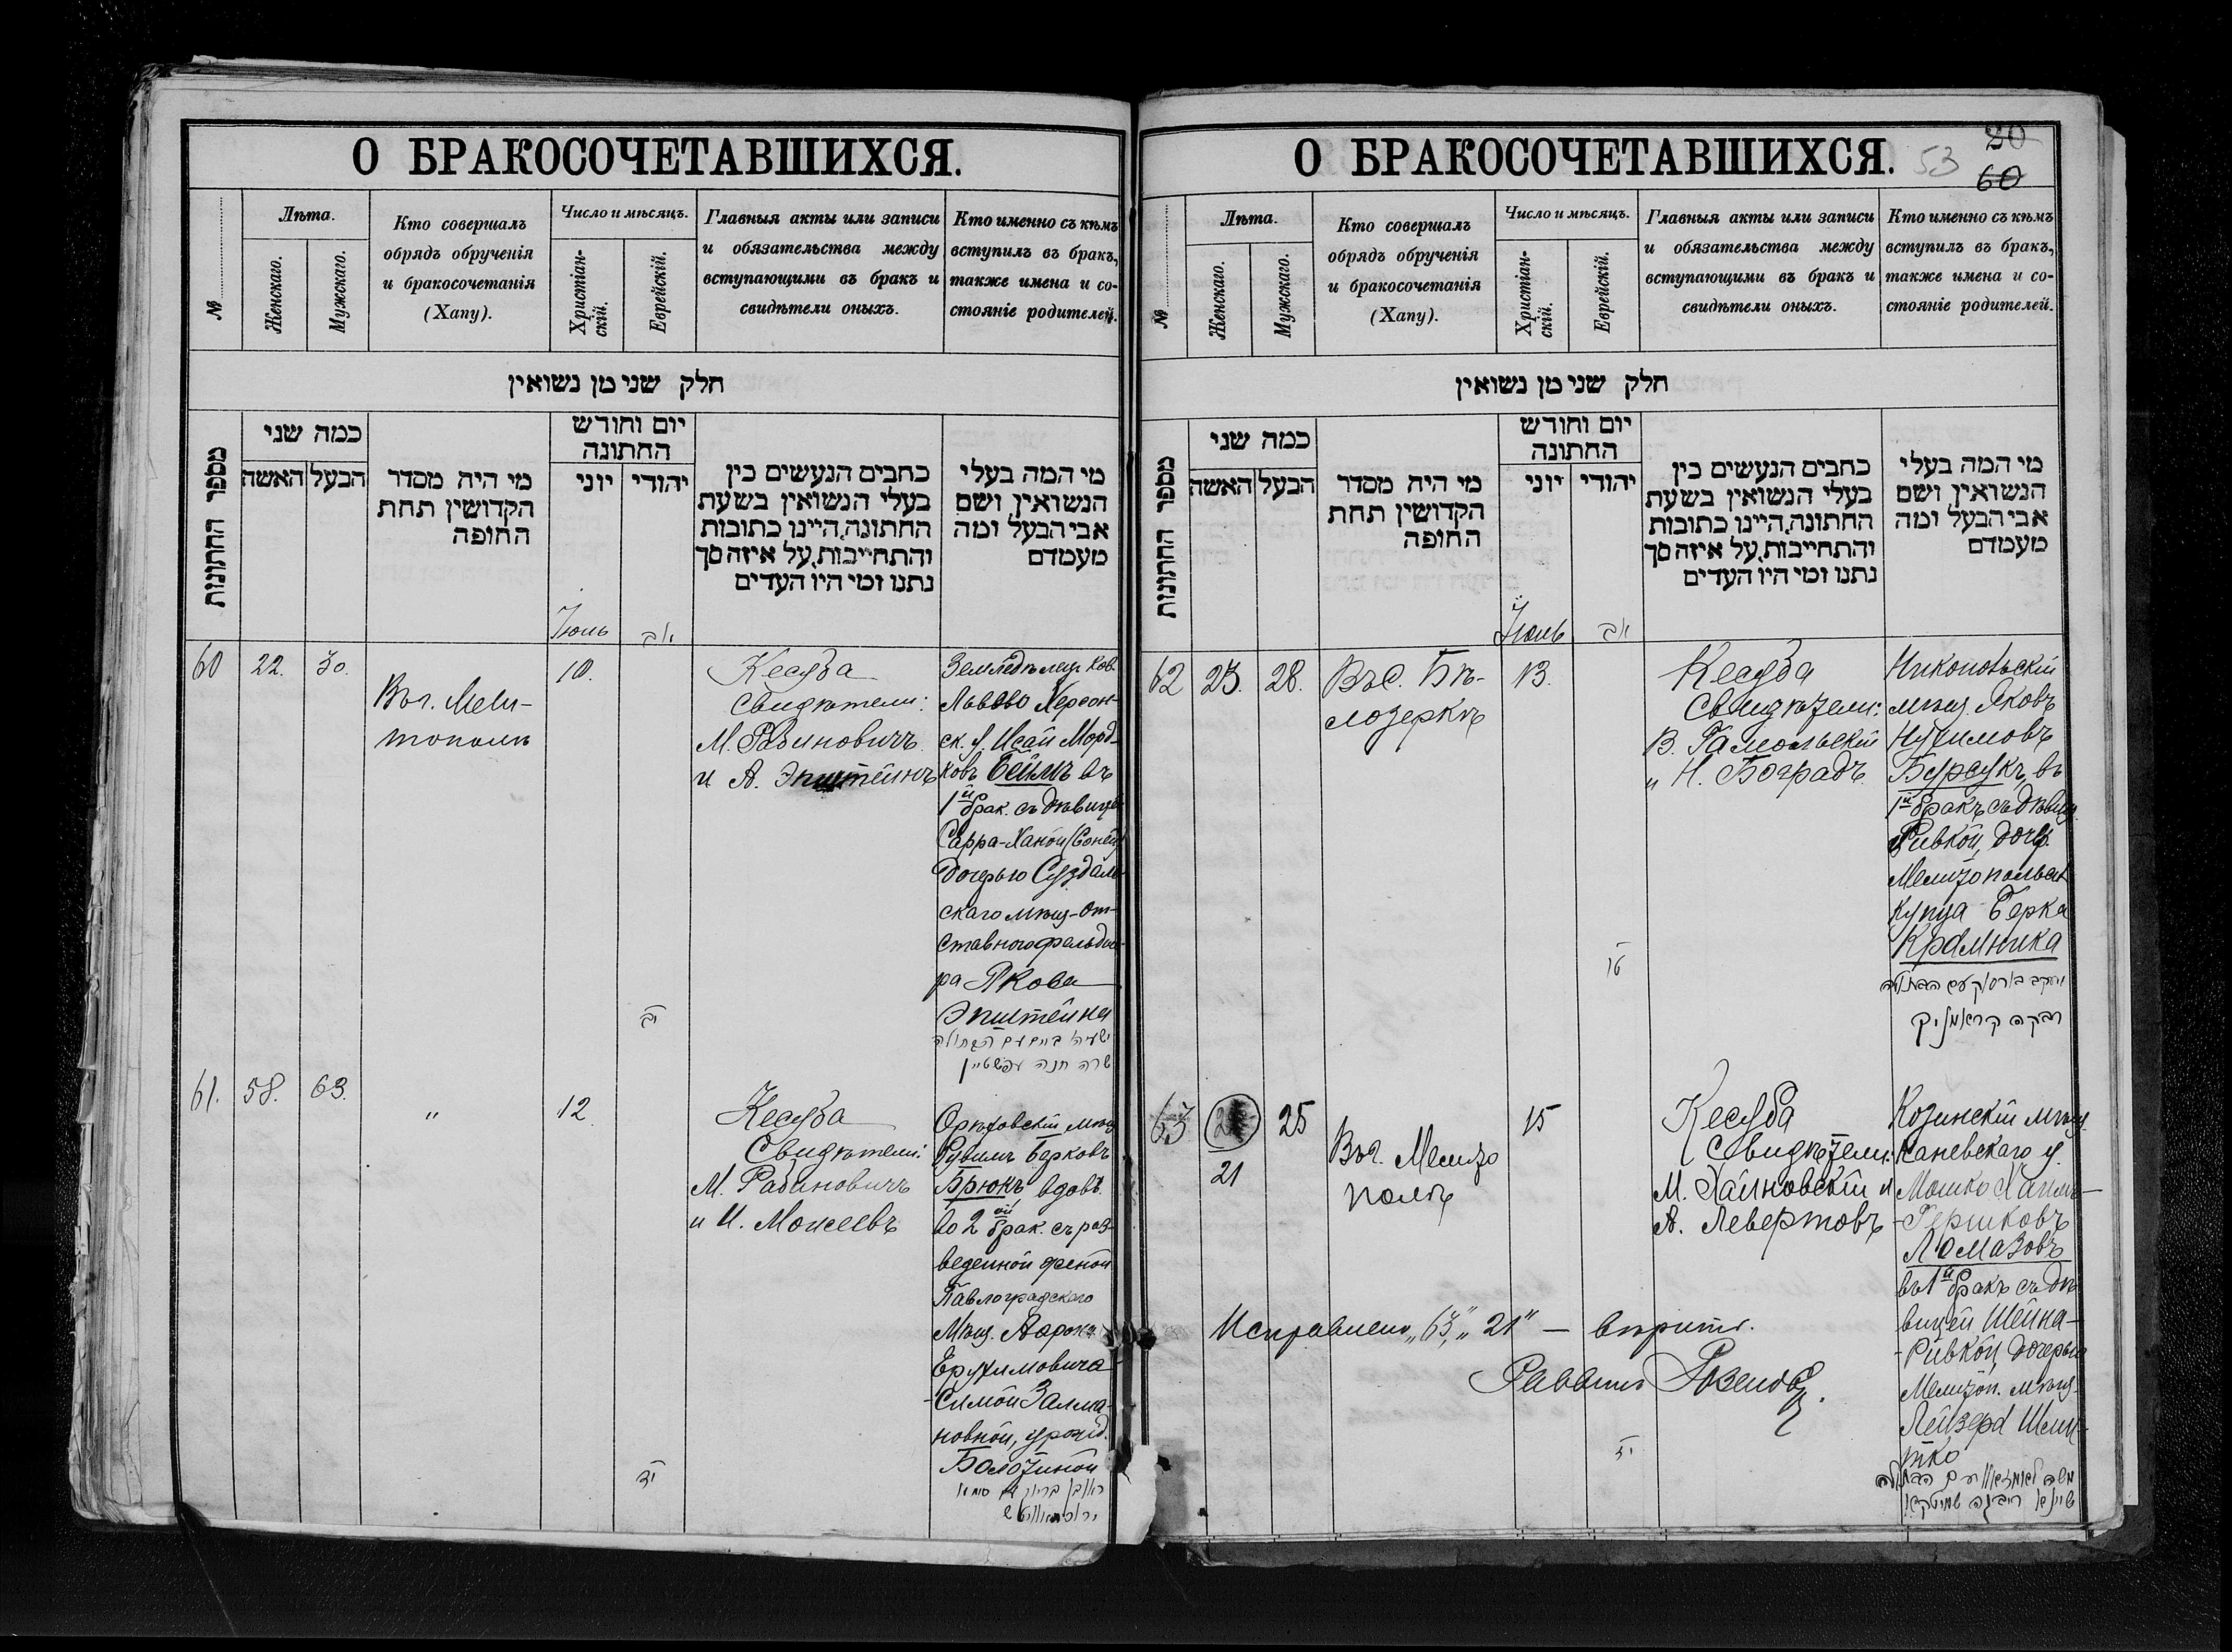 О БРАКОСОЧЕТАВШИХСЯ.
№
Лѣта.
Женскаго.
Мужскаго.
Кто совершалъ
обрядъ обрученія
и бракосочетанія
(Хапу).
Число и мѣсяцъ.
Христіан-
скій.
Еврейскій.
Главныя акты или записи
и обязательства между
вступающими въ бракъ и
свидѣтели оныхъ.
Кто именно съ кѣмъ
вступилъ въ бракъ,
также имена и со-
стояніе родителей.
חלק שני מן נשואין
מספר החתונות
כמה שני
האשה
הבעל
מי היה מסדר
הקדושין תחת
החופה
יום וחודש
החתונה
יוני
יהודי
כתבים הנעשים בין
בעלי הנשואין בשעת
החתונה, היינו כתובות
והתחייבות, על איזה סך
נתנו ומי היו העדים
מי המה בעלי
הנשואין ושם
אבי הבעל ומה
מעמדם
Іюль
אב
60
22.
30.
Въ г. Мели-
тополѣ
10.
יב
Кесуба
Свидѣтели:
М. Рабиновичъ
и А. Эпштейнъ
Земледѣлец. кол.
Львово Херсон-
ск. у. Исай Морд-
ковъ Беймъ въ
1й брак. съ дѣвицей
Сарра-Ханой (Соней)
дочерью Суздаль-
скаго мѣщ.-от-
ставного фельдше-
ра Якова
Эпштейна
ישעיה בײם עם הבתולה
שרה חנה עפשטיין
61.
58.
63.
"
12.
יד
Кесуба
Свидѣтели:
М. Рабиновичъ
и И. Моисеевъ
Орѣховскій мѣщ
Рувимъ Берковъ
Брюкъ вдовъ.
во 2ой брак. съ раз-
веденной женой
Павлоградскаго
мѣщ. Аарона
Ерухимовича
-Симой Залма-
новной, урожд.
Болотиной
О БРАКОСОЧЕТАВШИХСЯ.
53
20
60
№
Лѣта.
Женскаго.
Мужскаго.
Кто совершалъ
обрядъ обрученія
и бракосочетанія
(Хапу).
Число и мѣсяцъ.
Христіан-
скій.
Еврейскій.
Главныя акты или записи
и обязательства между
вступающими въ бракъ и
свидѣтели оныхъ.
Кто именно съ кѣмъ
вступилъ въ бракъ,
также имена и со-
стояніе родителей.
חלק שני מן נשואין
מספר החתונות
כמה שני
האשה
הבעל
מי היה מסדר
הקדושין תחת
החופה
יום וחודש
החתונה
יוני
יהודי
כתבים הנעשים בין
בעלי הנשואין בשעת
החתונה, היינו כתובות
והתחייבות, על איזה סך
נתנו ומי היו העדים
מי המה בעלי
הנשואין ושם
אבי הבעל ומה
מעמדם
Іюль
אב
62
23.
28.
Въ с. Бѣ-
лозеркѣ
13.
טו
Кесуба
Свидѣтели:
В. Гамольскій
и Н. Боградъ
Никопольскій
мѣщ. Яковъ
Нухимовъ
Бурсукъ, въ
1й бракъ съ дѣвиц.
Ривкой, дочер.
Мелитопольск
купца Берка
Крамника
יעקב בורסוק עם הבתולה
רבקה קראמניק
63
21
25
Въ г. Мелито
полѣ
15
יז
Кесуба
Свидѣтели:
М. Хаиновскій и
А. Левертовъ
Козинскій мѣщ.
Каневскаго у.
Мошко Хаимъ-
-Гершковъ
Ломазовъ
въ 1й бракъ съ дѣ
вицей Шейна-
-Ривкой, дочерью
Мелитоп. мѣщ.
Лейзера Шмы-
тко
משה לאמאזאוו עם הבתולה
שיינא ריבקה שמיטקא
Исправлено „63", „21" — вѣрить.
Раввинъ